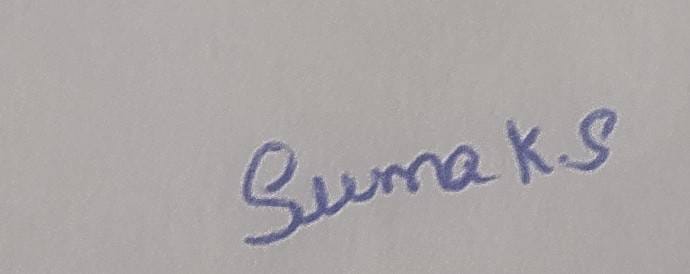 Suma K.S